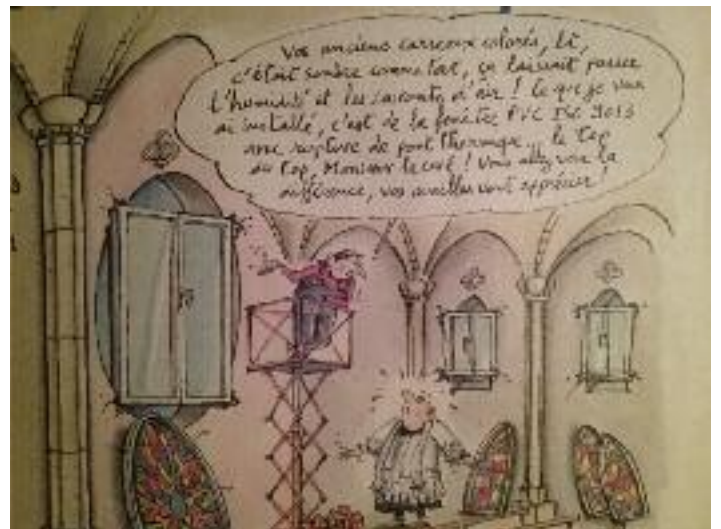 Vos anciens carreaux colorés, là,
c'était sombre comme tout, ça laissait passer
l'humidité et les courants d'air ! Ce que je vous
ai installé, c'est de la fenêtre PVC ISO 9013
avec rupture de pont thermique... le top
du top, Monsieur le curé ! Vous allez voir la
différence, vos ouailles vont apprécier !